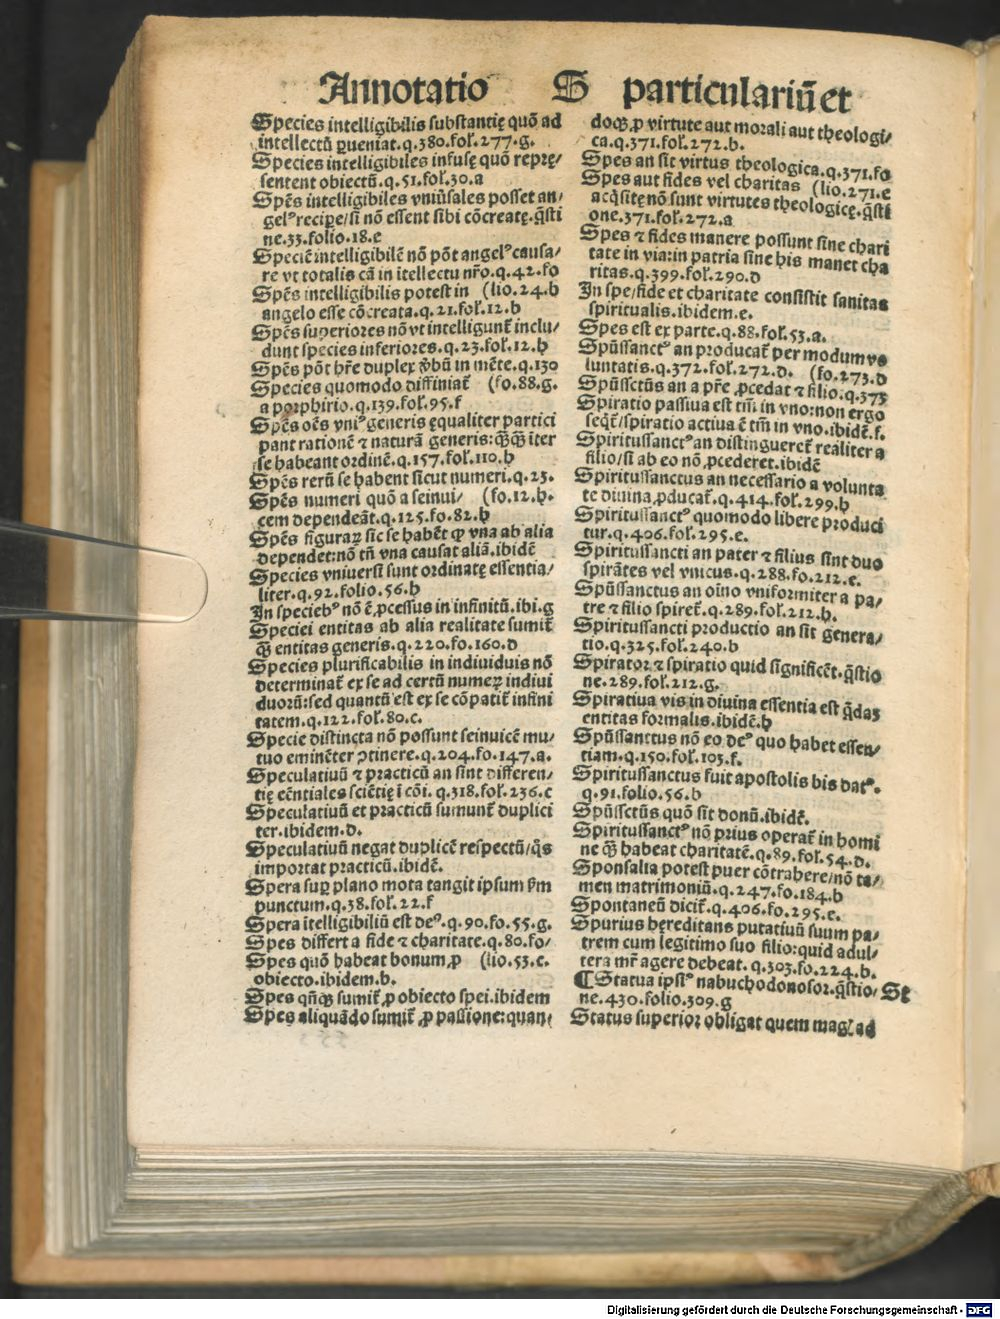 Annotatio S particulariũ et
Species intelligibilis substantię quõ ad
intellectũ ꝑueniat.q.380.fol.277.g.
Species intelligibiles infusę quõ reprę/
sentent obiectũ.q.51.fol.30.a
Spẽs intelligibiles vniũsales posset an/
gelꝰ recipe/si nõ essent sibi cõcreatę.q̃sti
ne.33.folio.18.e
Speciẽ intelligibilẽ nõ põt angelꝰ causa/
re vt totalis cã in itellectu nr̃o.q.42.fo
Spẽs intelligibilis potest in (lio.24.b
angelo esse cõcreata.q.21.fol.12.b
Spẽs superiores nõ vt intelligunt̃ inclu/
dunt species inferiores.q.23.fol.12.h
Spẽs põt hr̃e duplex ṽbũ in mẽte.q.130
Species quomodo diffiniat̃ (fo.88.g.
a porphirio.q.139.fol.95.f
Spẽs oẽs vniꝰ generis ęqualiter partici
pant rationẽ ⁊ naturã generis:q̃q̃ iter
se habeant ordinẽ.q.157.fol.110.h
Spẽs rerũ se habent sicut numeri.q.23.
Spẽs numeri quõ a seinui/ (fo.12.h.
cem dependeãt.q.125.fo.82.h
Spẽs figuraꝝ sic se habẽt ꝙ vna ab alia
dependet:nõ tñ vna causat aliã.ibidẽ
Species vniuersi sunt ordinatę essentia/
liter.q.92.folio.56.h
In speciebꝰ nõ ẽ ꝓcessus in infinitũ.ibi.g
Speciei entitas ab alia realitate sumit̃
q̃ entitas generis.q.220.fo.160.d
Species plurificabilis in indiuiduis nõ
determinat̃ ex se ad certũ numeꝝ indiui
duorũ:sed quantũ est ex se cõpatit̃ infini
tatem.q.122.fol.80.c.
Specie distincta nõ possunt seinuicẽ mu/
tuo eminẽter ꝯtinere.q.204.fo.147.a.
Speculatiuũ ⁊ practicũ an sint differen/
tię eẽntiales sciẽtię i cõi. q.318.fol.236.c
Speculatiuũ et practicũ sumunt̃ duplici
ter.ibidem.d.
Speculatiuũ negat duplicẽ respectũ/q̃s
importat practicũ.ibidẽ.
Spera sup plano mota tangit ipsum ẽm
punctum.q.38.fol.22.f
Spera itelligibiliũ est deꝰ.q.90.fo.55.g.
Spes differt a fide ⁊ charitate.q.80.fo/
Spes quõ habeat bonum ꝓ (lio.53.e.
obiecto.ibidem.b.
Spes qñq̃ sumit̃ ꝓ obiecto spei.ibidem
Spes aliquãdo sumit̃ ꝓ passione:quan/
doq̃ ꝓ virtute aut morali aut theologi/
ca.q.371.fol.272.b.
Spes an sit virtus theologica.q.371.fo
Spes aut fides vel charitas (lio.271.e
acq̃sitę nõ sunt virtutes theologicę.q̃sti
one.371.fol.272.a
Spes ⁊ fides manere possunt sine chari
tate in via:in patria sine his manet cha
ritas.q.399.fol.290.d
In spe/fide et charitate consistit sanitas
spiritualis.ibidem.e.
Spes est ex parte.q.88.fol.53.a.
Spũssanctꝰ an producat̃ per modum vo
luntatis.q.372.fol.272.d. (fo.273.d
Spũssctũs an a pr̃e ꝓcedat ⁊ filio.q.373
Spiratio passiua est tm̃ in vno:non ergo
seqt̃/spiratio actiua ẽ tm̃ in vno.ibidẽ.f.
Spiritussanctꝰ an distingueret̃ realiter a
filio/si ab eo nõ ꝓcederet.ibidẽ
Spiritussanctus an necessario a volunta
te diuina ꝓducat̃.q.414.fol.299.h
Spiritussanctꝰ quomodo libere produci
tur.q.406.fol.295.e.
Spiritussancti an pater ⁊ filius sint duo
spirãtes vel vnicus.q.288.fo.212.e.
Spũssanctus an oĩno vniformiter a pa/
tre ⁊ filio spiret̃.q.289.fol.212.h.
Spiritussancti productio an sit genera/
tio.q.325.fol.240.b
Spirator ⁊ spiratio quid significẽt.q̃stio
ne.289.fol.212.g.
Spiratiua vis in diuina essentia est q̃daʒ
entitas formalis.ibidẽ.h
Spũssanctus nõ eo deꝰ quo habet essen/
tiam.q.150.fol.103.f.
Spiritussanctus fuit apostolis bis datꝰ.
q.91.folio.56.b
Spũssctũs quõ sit donũ.ibidẽ.
Spiritussanctꝰ nõ prius operat̃ in homi
ne q̃ habeat charitatẽ.q.89.fol.54.d.
Sponsalia potest puer cõtrahere/nõ ta/
men matrimoniũ.q.247.fo.184.b
Spontaneũ dicit̃.q.406.fo.295.e.
Spurius hęreditans putatiuũ suum pa/
trem cum legitimo suo filio:quid adul/
tera mr̃ agere debeat. q.303.fo.224.b.
¶Statua ipsiꝰ nabuchodonosor.q̃stio/ St
ne.430.folio.309.g
Status superior obligat quem magꝭ ad
Digitalisierung gefördert durch die Deutsche Forschungsgemeinschaft - DFG